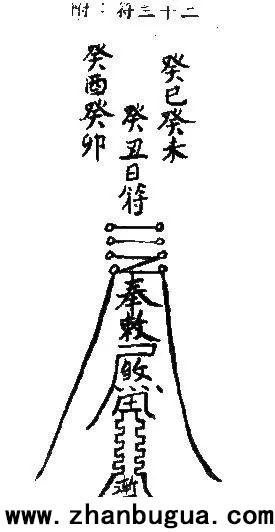 附：符三十二
癸巳癸未
癸丑日符
癸酉癸卯
奉敕
www.zhanbugua.com